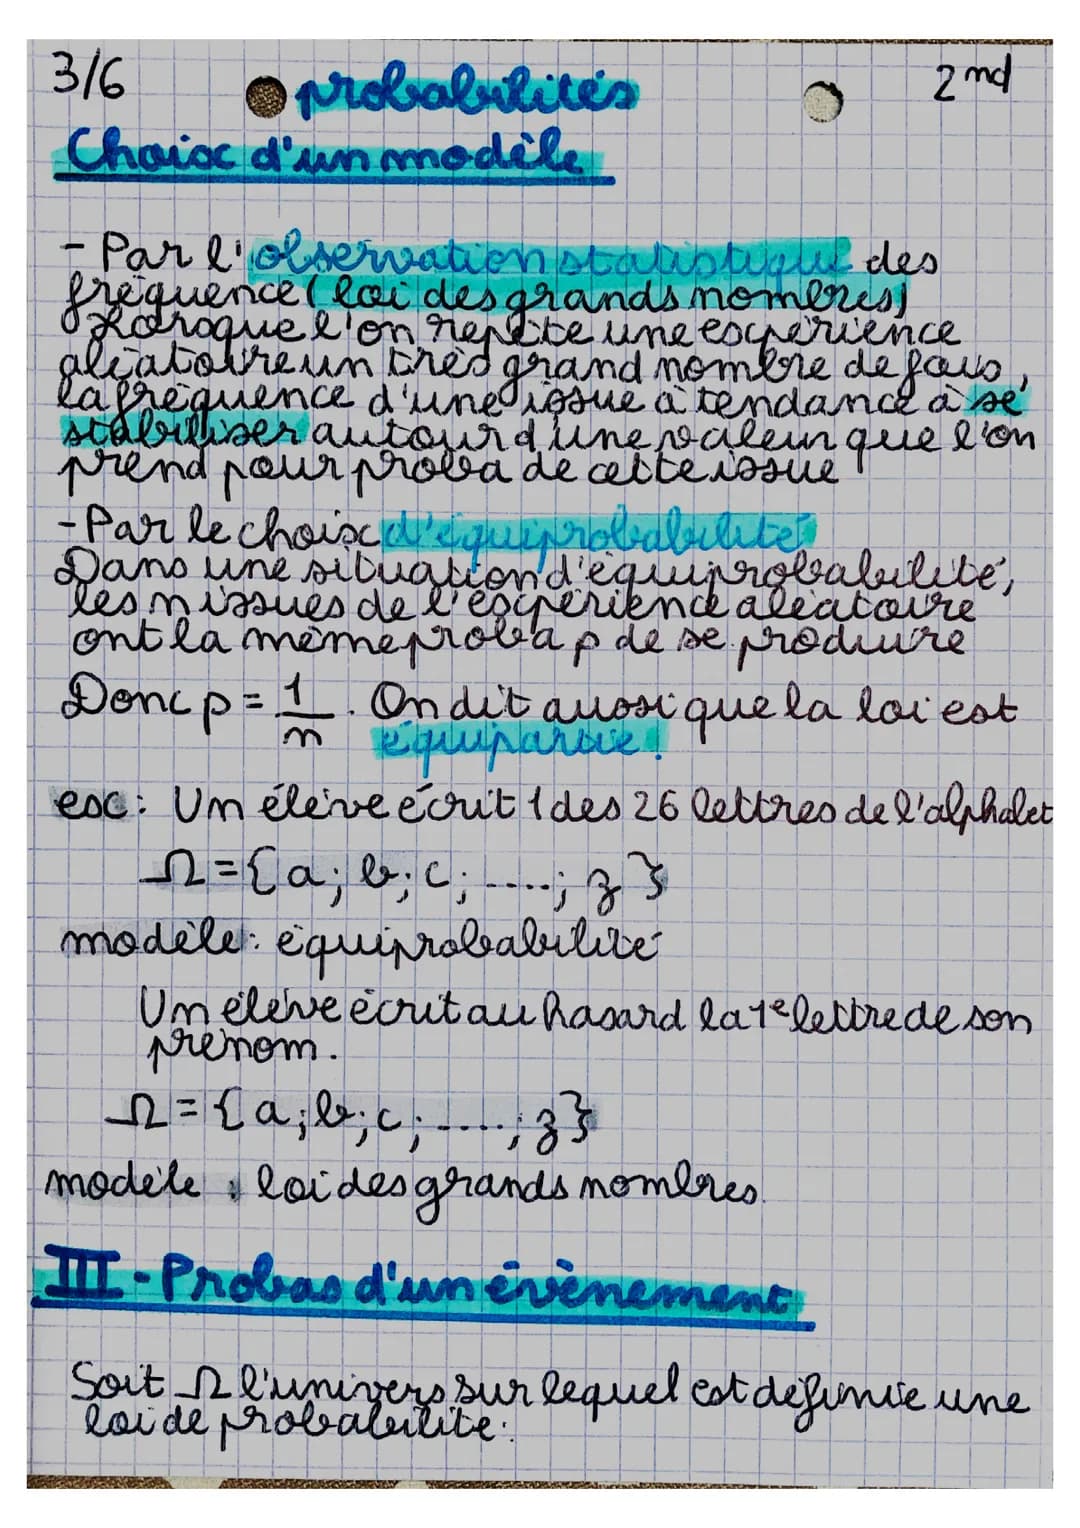 3/6
probabilités
2nd
Choix d'un modèle
- Par l'observation statistique des
fréquence (loi des grands nombres)
Lorsque l'on repète une expérience
aléatoire un très grand nombre de fois,
la fréquence d'une issue à tendance à se
stabiliser autour d'une valeur que l'on
prend pour proba de cette issue
- Par le choix d'équiprobabilité
Dans une situation d'équiprobabilité,
les n issues de l'expérience aléatoire
ont la même proba p de se produire
Donc p = 1/n. On dit aussi que la loi est
équipartie.
ex: Un élève écrit 1 des 26 lettres de l'alphabet
Ω = {a; b; c; ....; z}
modèle: équiprobabilité
Un élève écrit au hasard la 1e lettre de son
prénom.
Ω = {a; b; c; ....; z}
modèle : loi des grands nombres.
III - Probas d'un évènement
Soit Ω l'univers sur lequel est définie une
loi de probabilité: